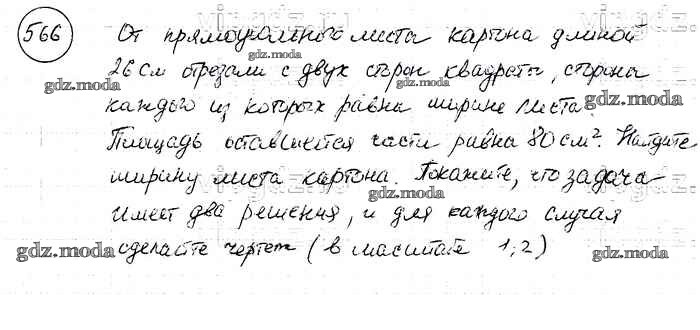 566 От прямоугольного листа картона длиной
26 см отрезали с двух сторон квадраты, стороны
каждого из которых равна ширине листа.
Площадь оставшейся части равна 80 см². Найдите
ширину листа картона. Покажите, что задача
имеет два решения, и для каждого случая
сделайте чертеж (в масштабе 1:2)
gdz.moda
gdz.moda
gdz.moda
gdz.moda
gdz.moda
gdz.moda
gdz.moda